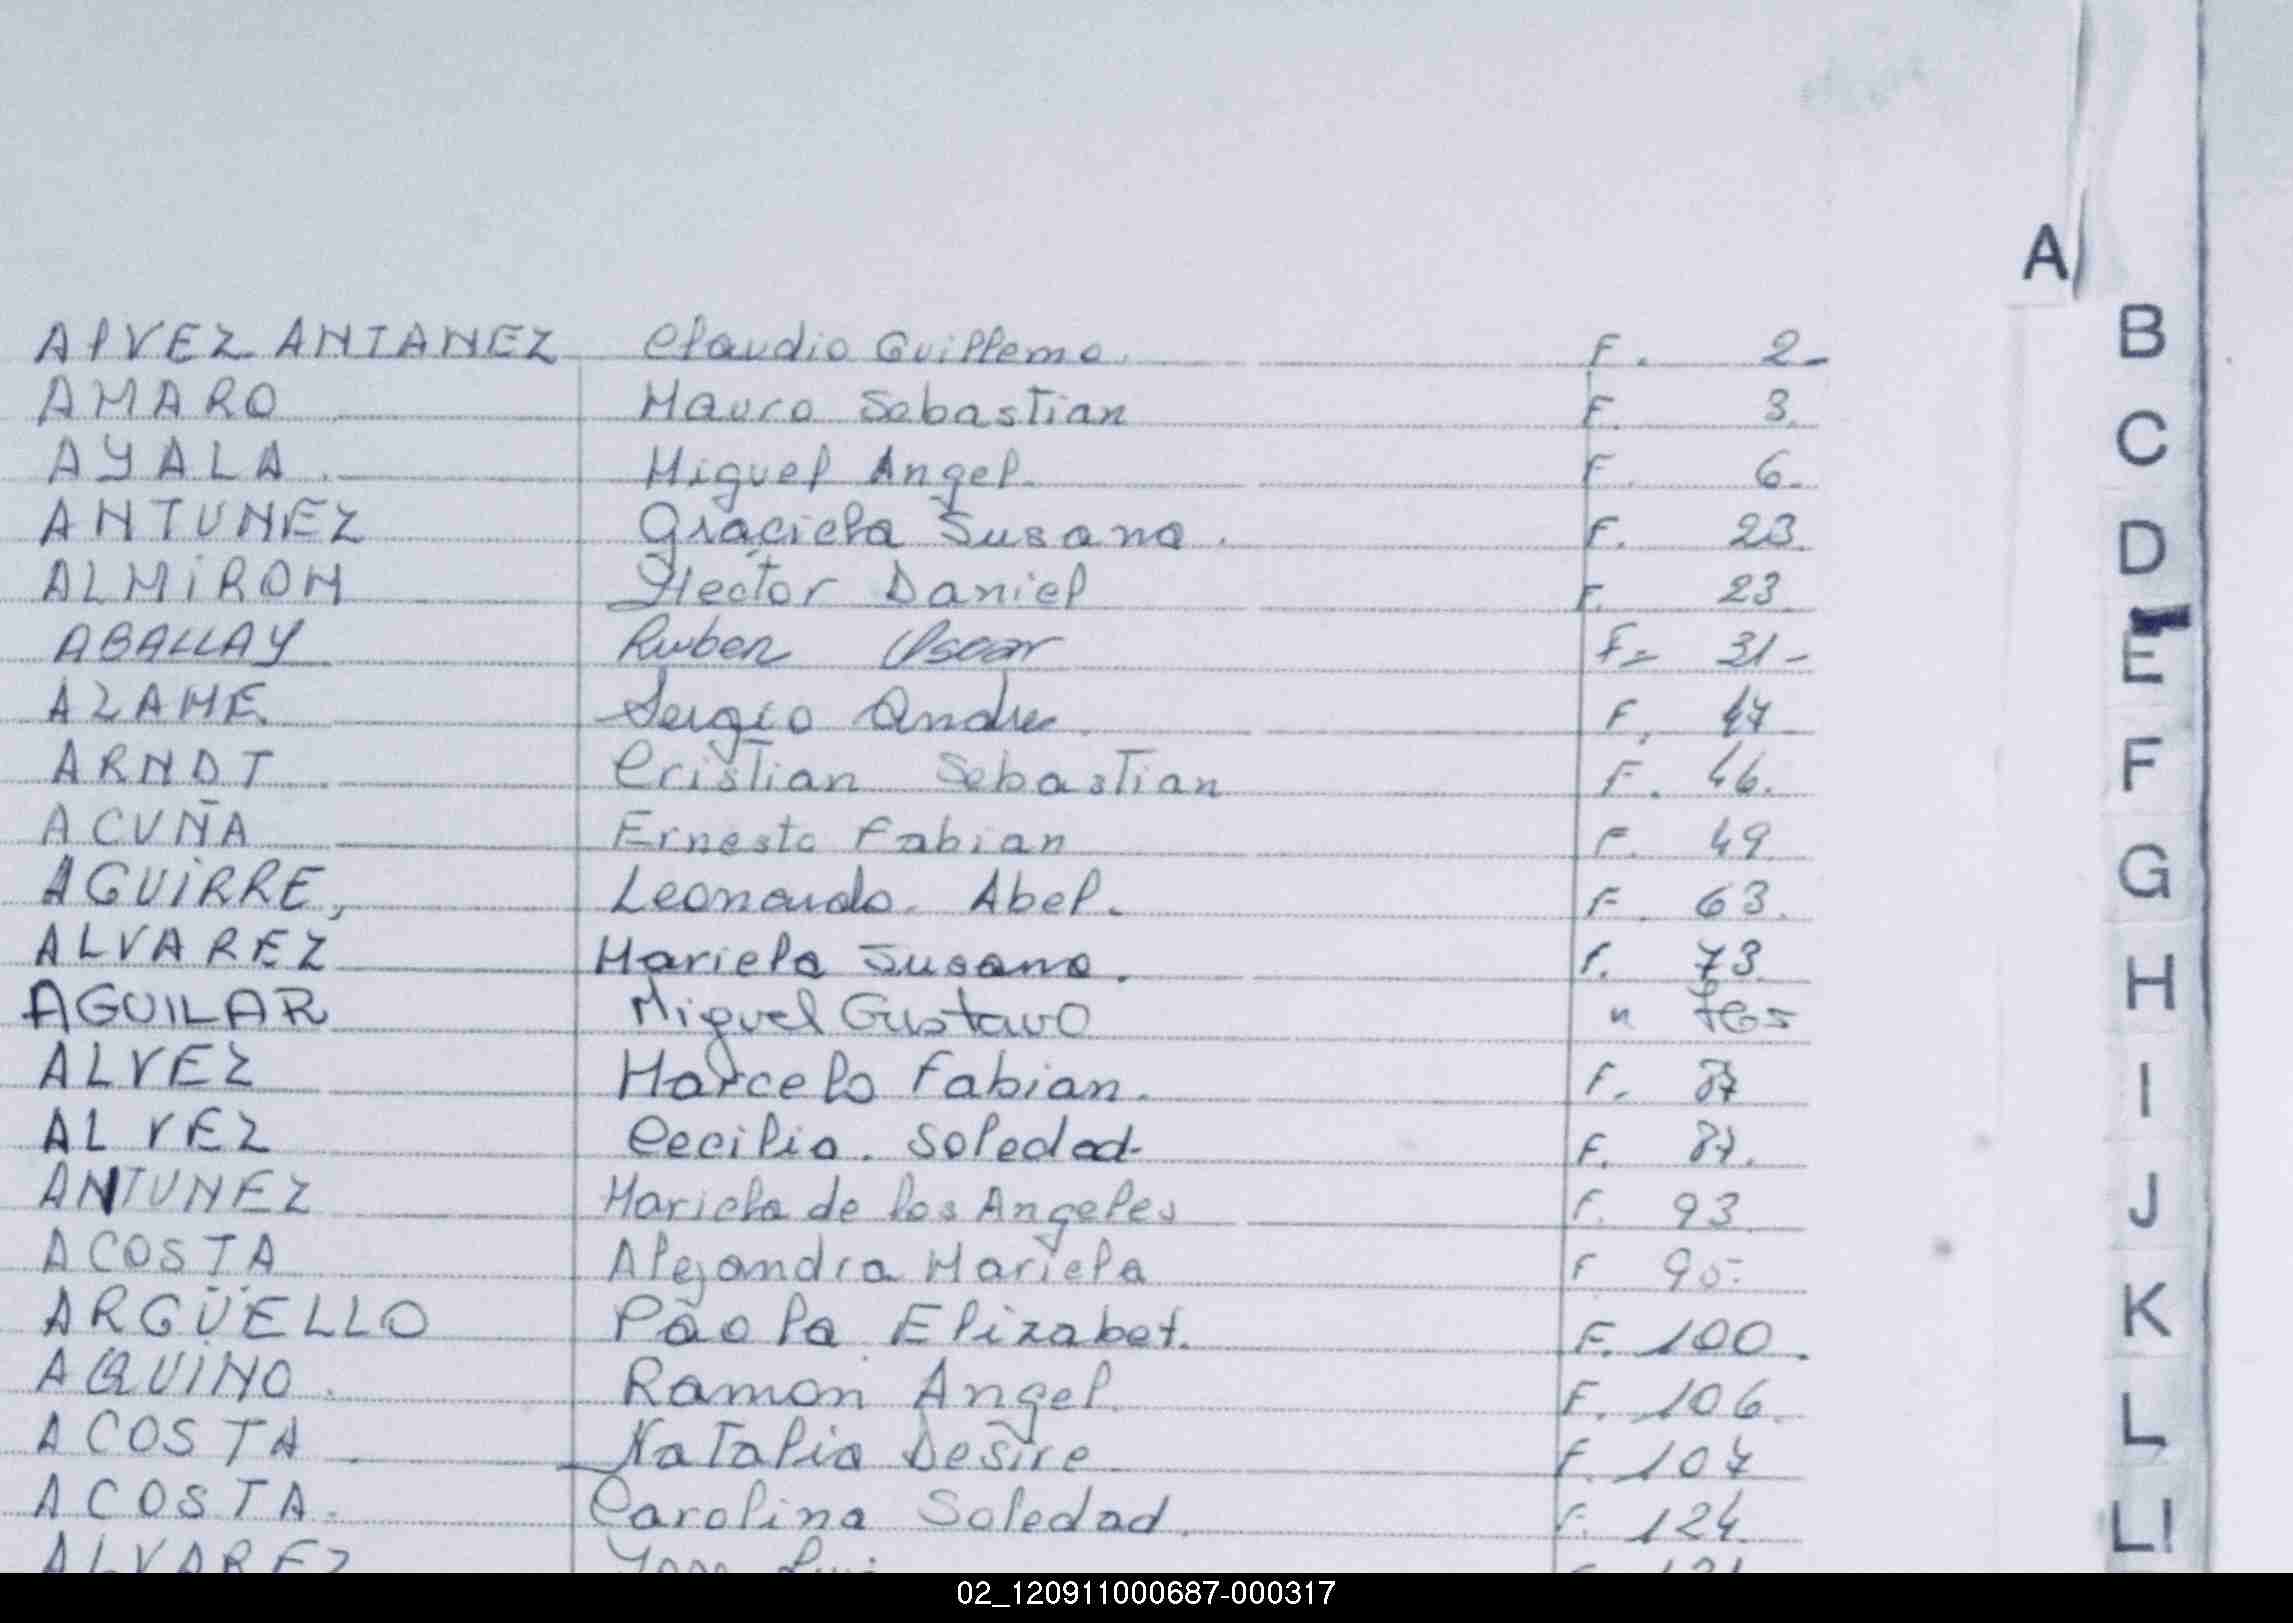 A
ALVEZ ANTANEZ Claudio Guillemo. F. 2-
B
AMARO Mauro Sebastian F. 3.
C
AYALA. Miguel Angel. F. 6.
ANTUNEZ Graciela Susana. F. 23.
D
ALMIRON Hector Daniel F. 23
ABALLAY Ruben Oscar F= 31-
E
AZAME Sergio Andre F. 47
F
ARNDT Cristian Sebastian F. 46.
ACUÑA Ernesto Fabian F. 49
G
AGUIRRE, Leonardo. Abel. F. 63.
ALVAREZ Mariela Susana. F. 73
H
AGUILAR Miguel Gustavo "
ALVEZ Marcelo Fabian. F. 87
I
ALVEZ Cecilia. Soledad. F. 87.
ANTUNEZ Mariela de los Angeles F. 93
J
ACOSTA Alejandra Mariela F 95.
ARGÜELLO Paola Elizabet. F. 100.
K
AQUINO. Ramon Angel. F. 106.
L
ACOSTA Natalia Desire F. 107
ACOSTA. Carolina Soledad. F. 124
LL
ALVAREZ
02_120911000687-000317